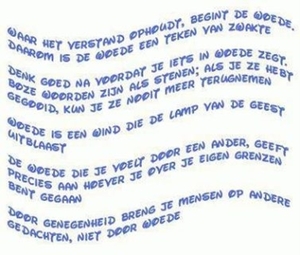 WAAR HET VERSTAND OPHOUDT, BEGINT DE WOEDE.
DAAROM IS DE WOEDE EEN TEKEN VAN ZWAKTE
DENK GOED NA VOORDAT JE IETS IN WOEDE ZEGT.
BOZE WOORDEN ZIJN ALS STENEN; ALS JE ZE HEBT
GEGOOID, KUN JE ZE NOOIT MEER TERUGNEMEN
WOEDE IS EEN WIND DIE DE LAMP VAN DE GEEST
UITBLAAST
DE WOEDE DIE JE VOELT DOOR EEN ANDER, GEEFT
PRECIES AAN HOEVER JE OVER JE EIGEN GRENZEN
BENT GEGAAN
DOOR GENEGENHEID BRENG JE MENSEN OP ANDERE
GEDACHTEN, NIET DOOR WOEDE